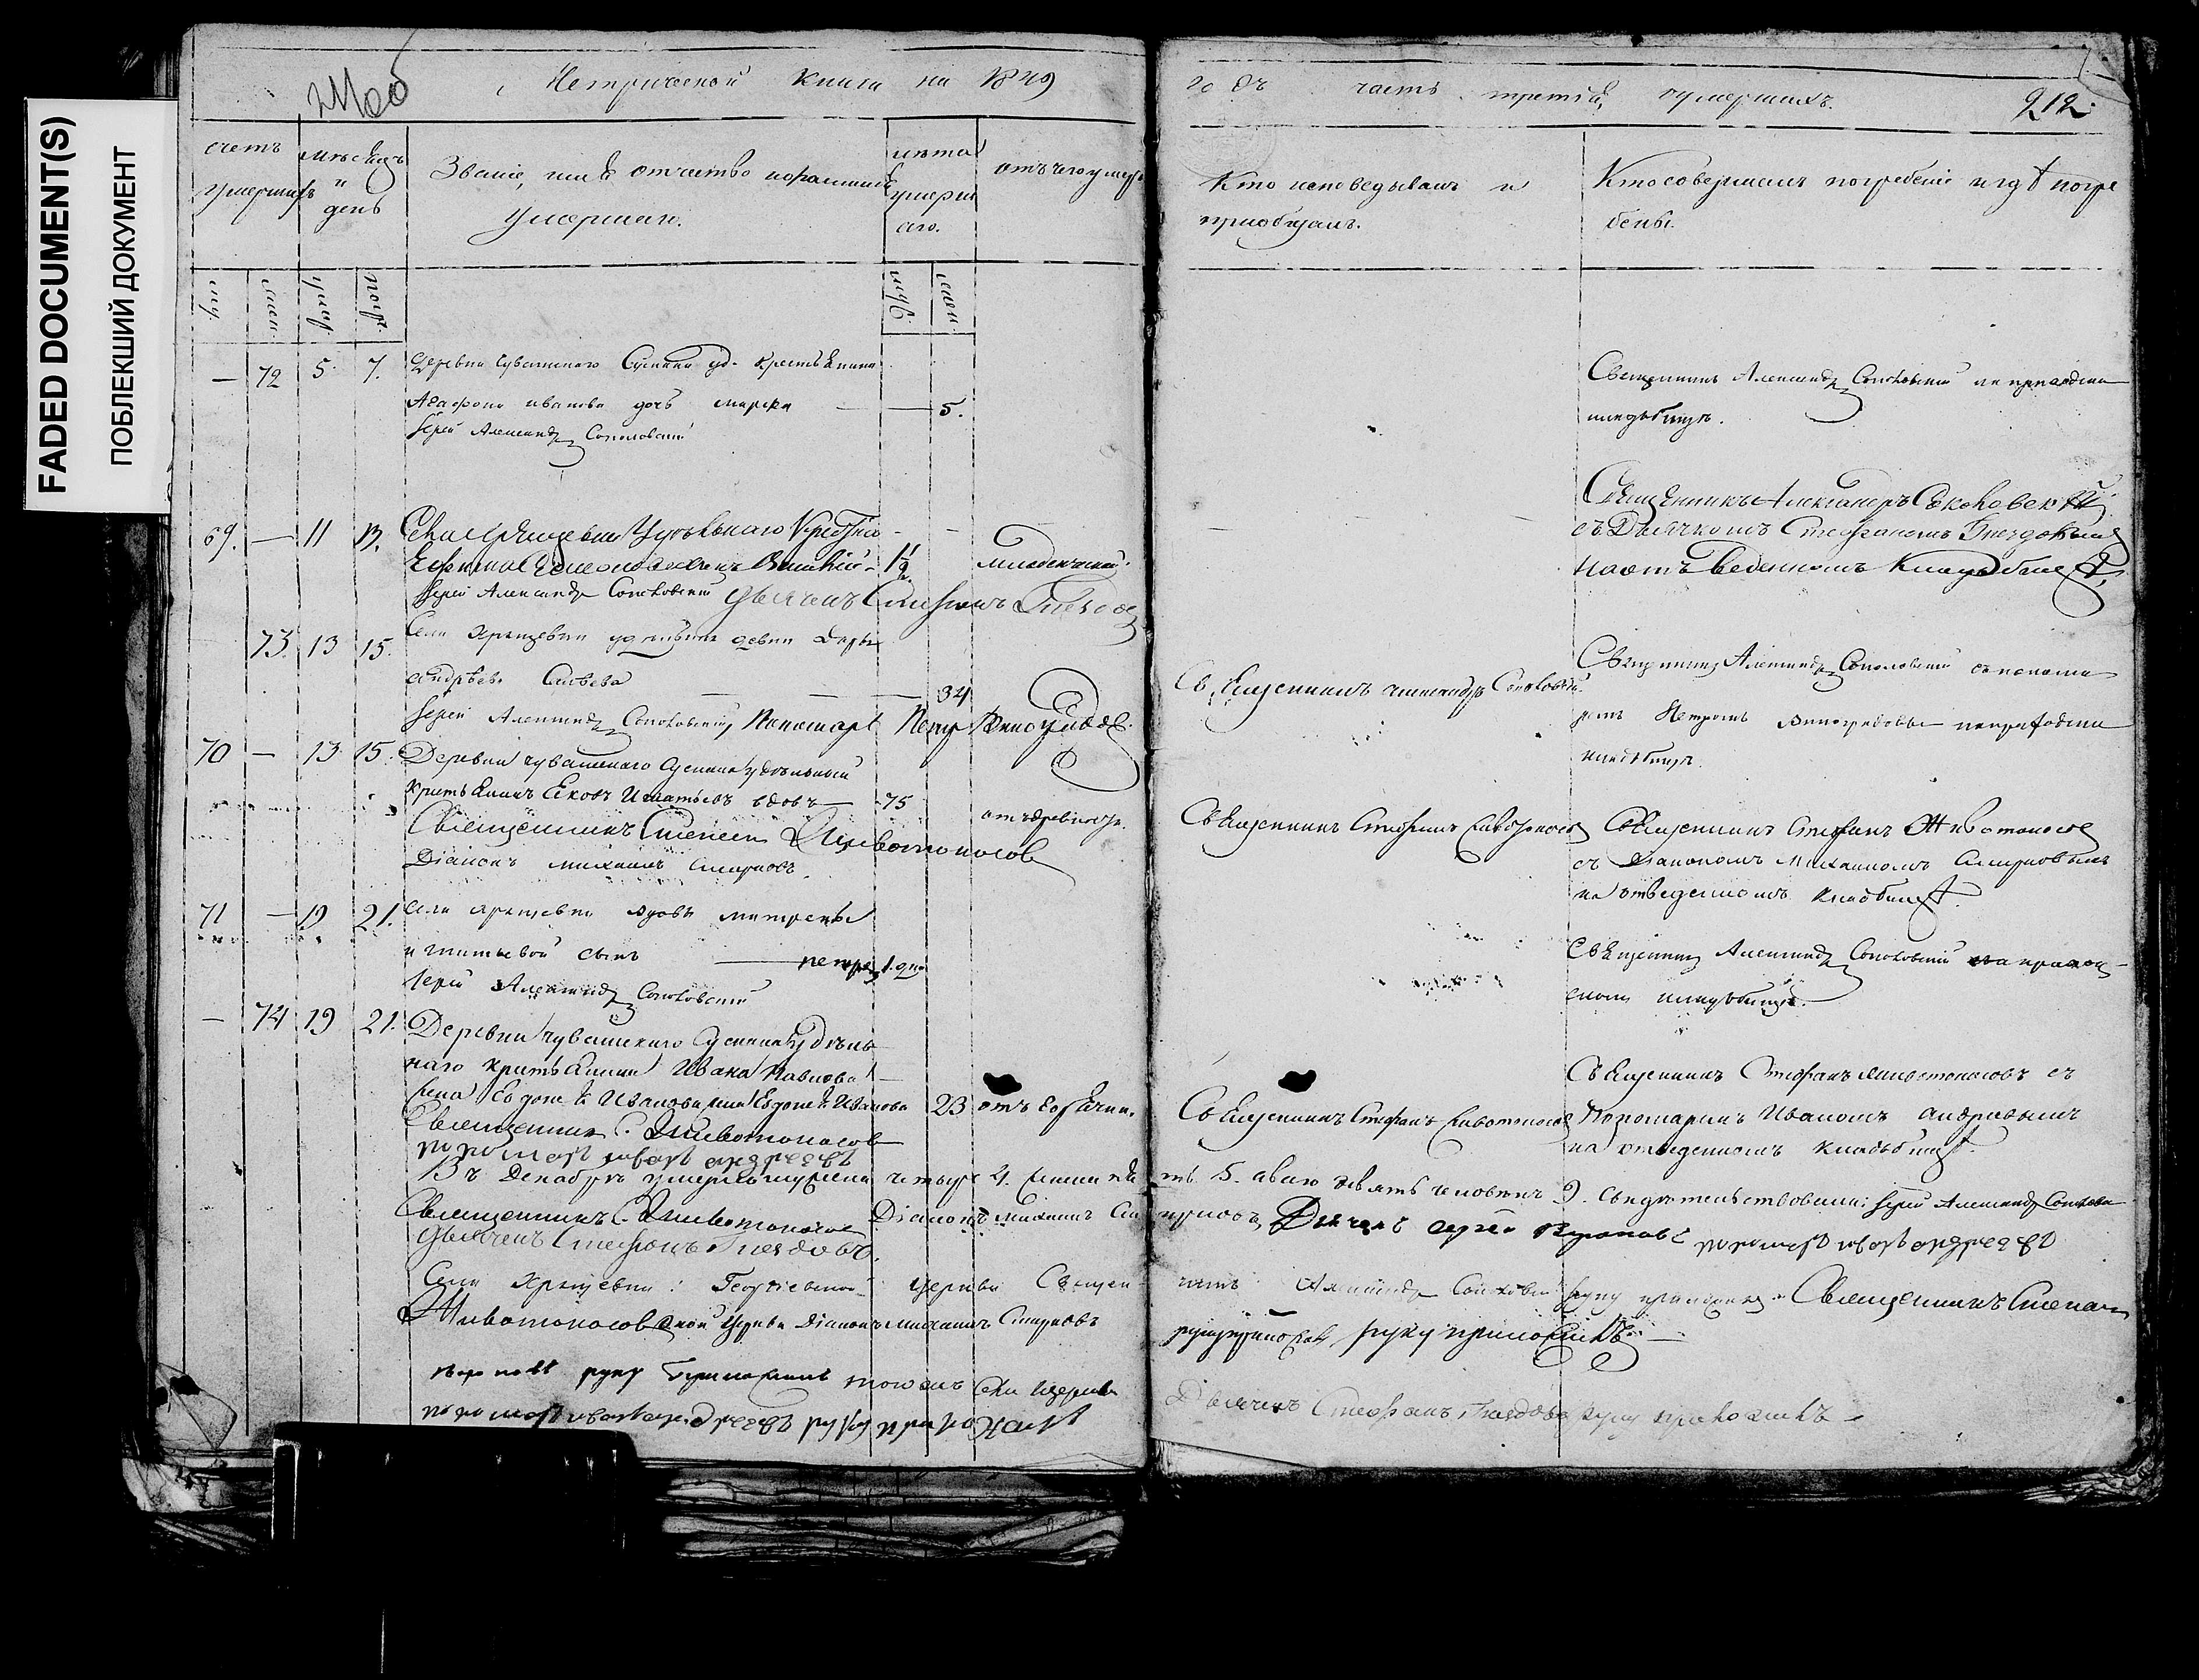 FADED DOCUMENT(S)
ПОБЛЕКШИЙ ДОКУМЕНТ
Метрической Книги на 1849
годъ часть третія, умершихъ.
212
счетъ умершихъ
мѣсяцъ и день
Званіе, имя отчество и фамилія
умершаго.
лѣта умершаго.
отъ чего умеръ
Кто исповедывалъ и
приобщалъ.
Кто совершалъ погребеніе и гдѣ погре
бены.
му. жен. умер. погр. муж. жен.
— 72 5 7. Деревни Чувашскаго Сускана уд. крестьянина
Агафона Иванова дочь Марѳа — — 5.
Іерей Александръ Соколовскій
Священникъ Александръ Соколовскій на приходском
кладбищѣ.
69. — 11 13. Села Хрящевки Удѣльнаго
Василій 1½ младенческой.
Іерей Александръ Соколовскій Дьячекъ Стефанъ Гнездов
Священникъ Александръ Соколовскій
съ Дьячкомъ Стефаномъ Гнездовым
на отъведенномъ Кладбищѣ
73. 13 15. Села Хрящевки удельная девка Дарья
Андрѣева — — 34
Іерей Александръ Соколовскій, Пономарь Петр Виноградов
Священникъ Александръ Соколовскій
Священникъ Александръ Соколовскій съ понома
ремъ Петромъ Виноградовым на приходском
кладбищѣ.
70 — 13 15. Деревни Чувашскаго Сускана удѣльной
крестьянинъ Яковъ Игнатьевъ вдовъ — 75 отъ древности.
Священникъ Стефан Животоносов
Діаконъ Михаилъ Смирновъ.
Священникъ Стефанъ Животоносов
Священникъ Стефанъ Животоносов
съ Діакономъ Михаиломъ Смирновымъ
на отведенномъ кладбищѣ.
71 — 19 21. Села Хрящевки вдовы Матрены
Игнатьевой сынъ — Петръ 1. дня
Іерей Александръ Соколовскій
Священникъ Александръ Соколовскій на приход-
скомъ кладбищѣ.
— 74 19 21. Деревни Чувашскаго Сускана Удѣль
наго крестьянина Ивана Павлова
жена Евдокія Иванова 23 отъ горячки.
Священник С. Животоносов
пономарь Иванъ Андреевъ
Священникъ Стефанъ Животоносов
Священникъ Стефанъ Животоносовъ съ
Пономаремъ Иваномъ Андреевымъ
на отведенномъ кладбищѣ.
Въ Декабрѣ умерло мужеска четыре 4. женска пя
ть 5. а всего девять человекъ 9. свидѣтельствовали: Іерей Александръ Соколовс
Священникъ С. Животоносов Діаконъ Михаилъ Сми
рновъ, Дьячекъ
пономарь Иванъ Андреевъ
Дьячекъ Стефанъ Гнездовъ.
Села Хрящевки: Георгіевской церкви Священ
никъ Александръ Соколовскій руку приложилъ. Священникъ Стефан
Животоносов оной Церкви Діаконъ Михаилъ Смирновъ
руку приложилъ
руку приложилъ тоежъ церкви
пономарь Иванъ Андреевъ руку приложилъ
Дьячекъ Стефанъ Гнездовъ руку приложилъ